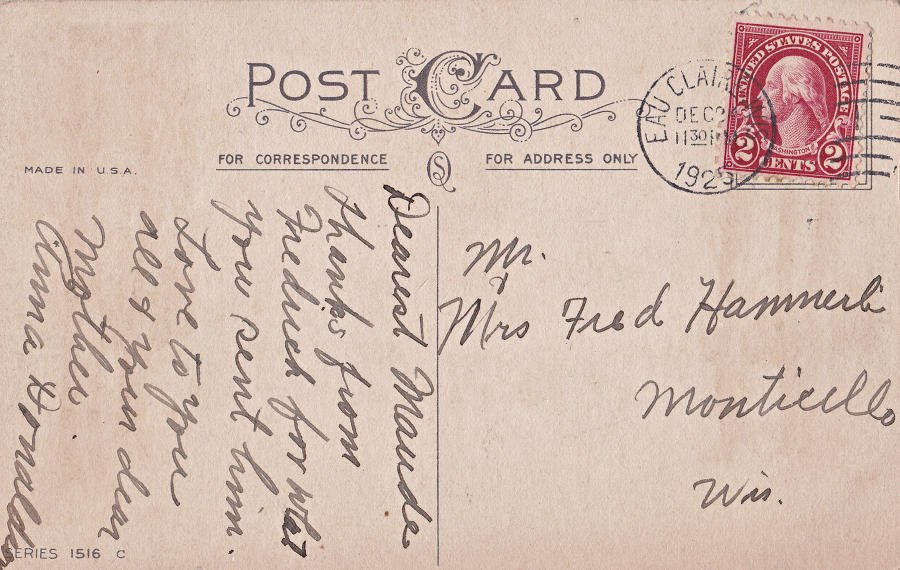 POST CARD
FOR CORRESPONDENCE
FOR ADDRESS ONLY
MADE IN U.S.A.
EAU CLAIRE
DEC 2
11 30
UNITED STATES POSTAGE
WASHINGTON
2 CENTS 2
Dearest Maude
thanks from
Fredrick for what
you sent him.
Love to you
all & your dear
Mother.
Anna & Donald
Mr.
& Mrs Fred Hammerli
Monticello
Wis.
SERIES 1516 C